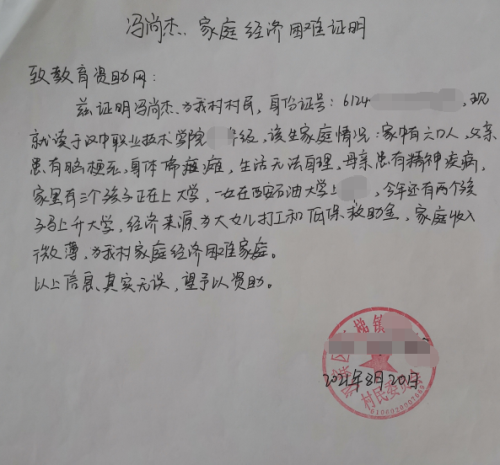 冯尚杰、家庭经济困难证明
致教育资助网：
兹证明冯尚杰、为我村村民，身份证号：6124 ，现
就读于汉中职业技术学院 年级，该生家庭情况：家中有六口人，父亲
患有脑梗死，身体偏瘫，生活无法自理，母亲患有精神疾病，
家里有三个孩子正在上大学，一女在西安石油大学上 ，今年还有两个孩
子马上升大学，经济来源为大女儿打工和低保救助金，家庭收入
微薄，为我村家庭经济困难家庭。
以上信息、真实无误，望予以资助。
梯镇
村民委员会
2021年8月20日